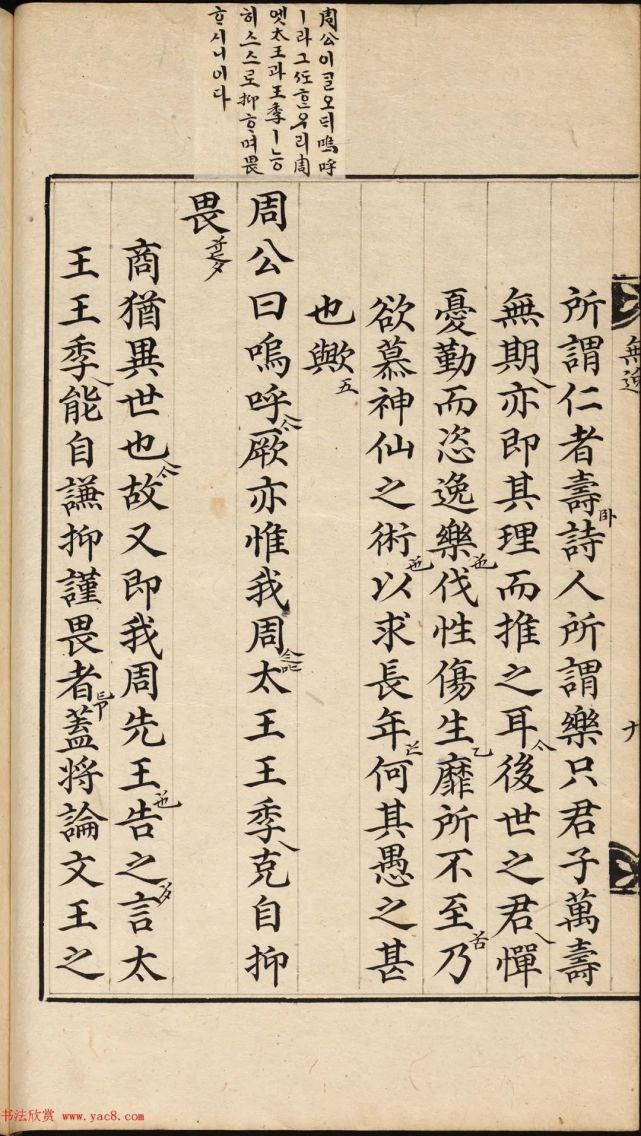 周公이ᄀᆞᆯ오ᄃᆡ嗚呼
ㅣ라그또ᄒᆞᆫ우리周
엣太王과王季ㅣ능
히스스로抑ᄒᆞ며畏
ᄒᆞ시니이다
無逸
所謂仁者壽詩人所謂樂只君子萬壽
無期亦即其理而推之耳後世之君憚
憂勤而恣逸樂伐性傷生靡所不至乃
欲慕神仙之術以求長年何其愚之甚
也歟
周公曰嗚呼厥亦惟我周太王王季克自抑
畏
商猶異世也故又即我周先王告之言太
王王季能自謙抑謹畏者蓋將論文王之
书法欣赏 www.yac8.com